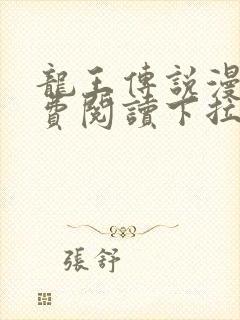 龍王傳說漫
費閱讀下拉
張舒